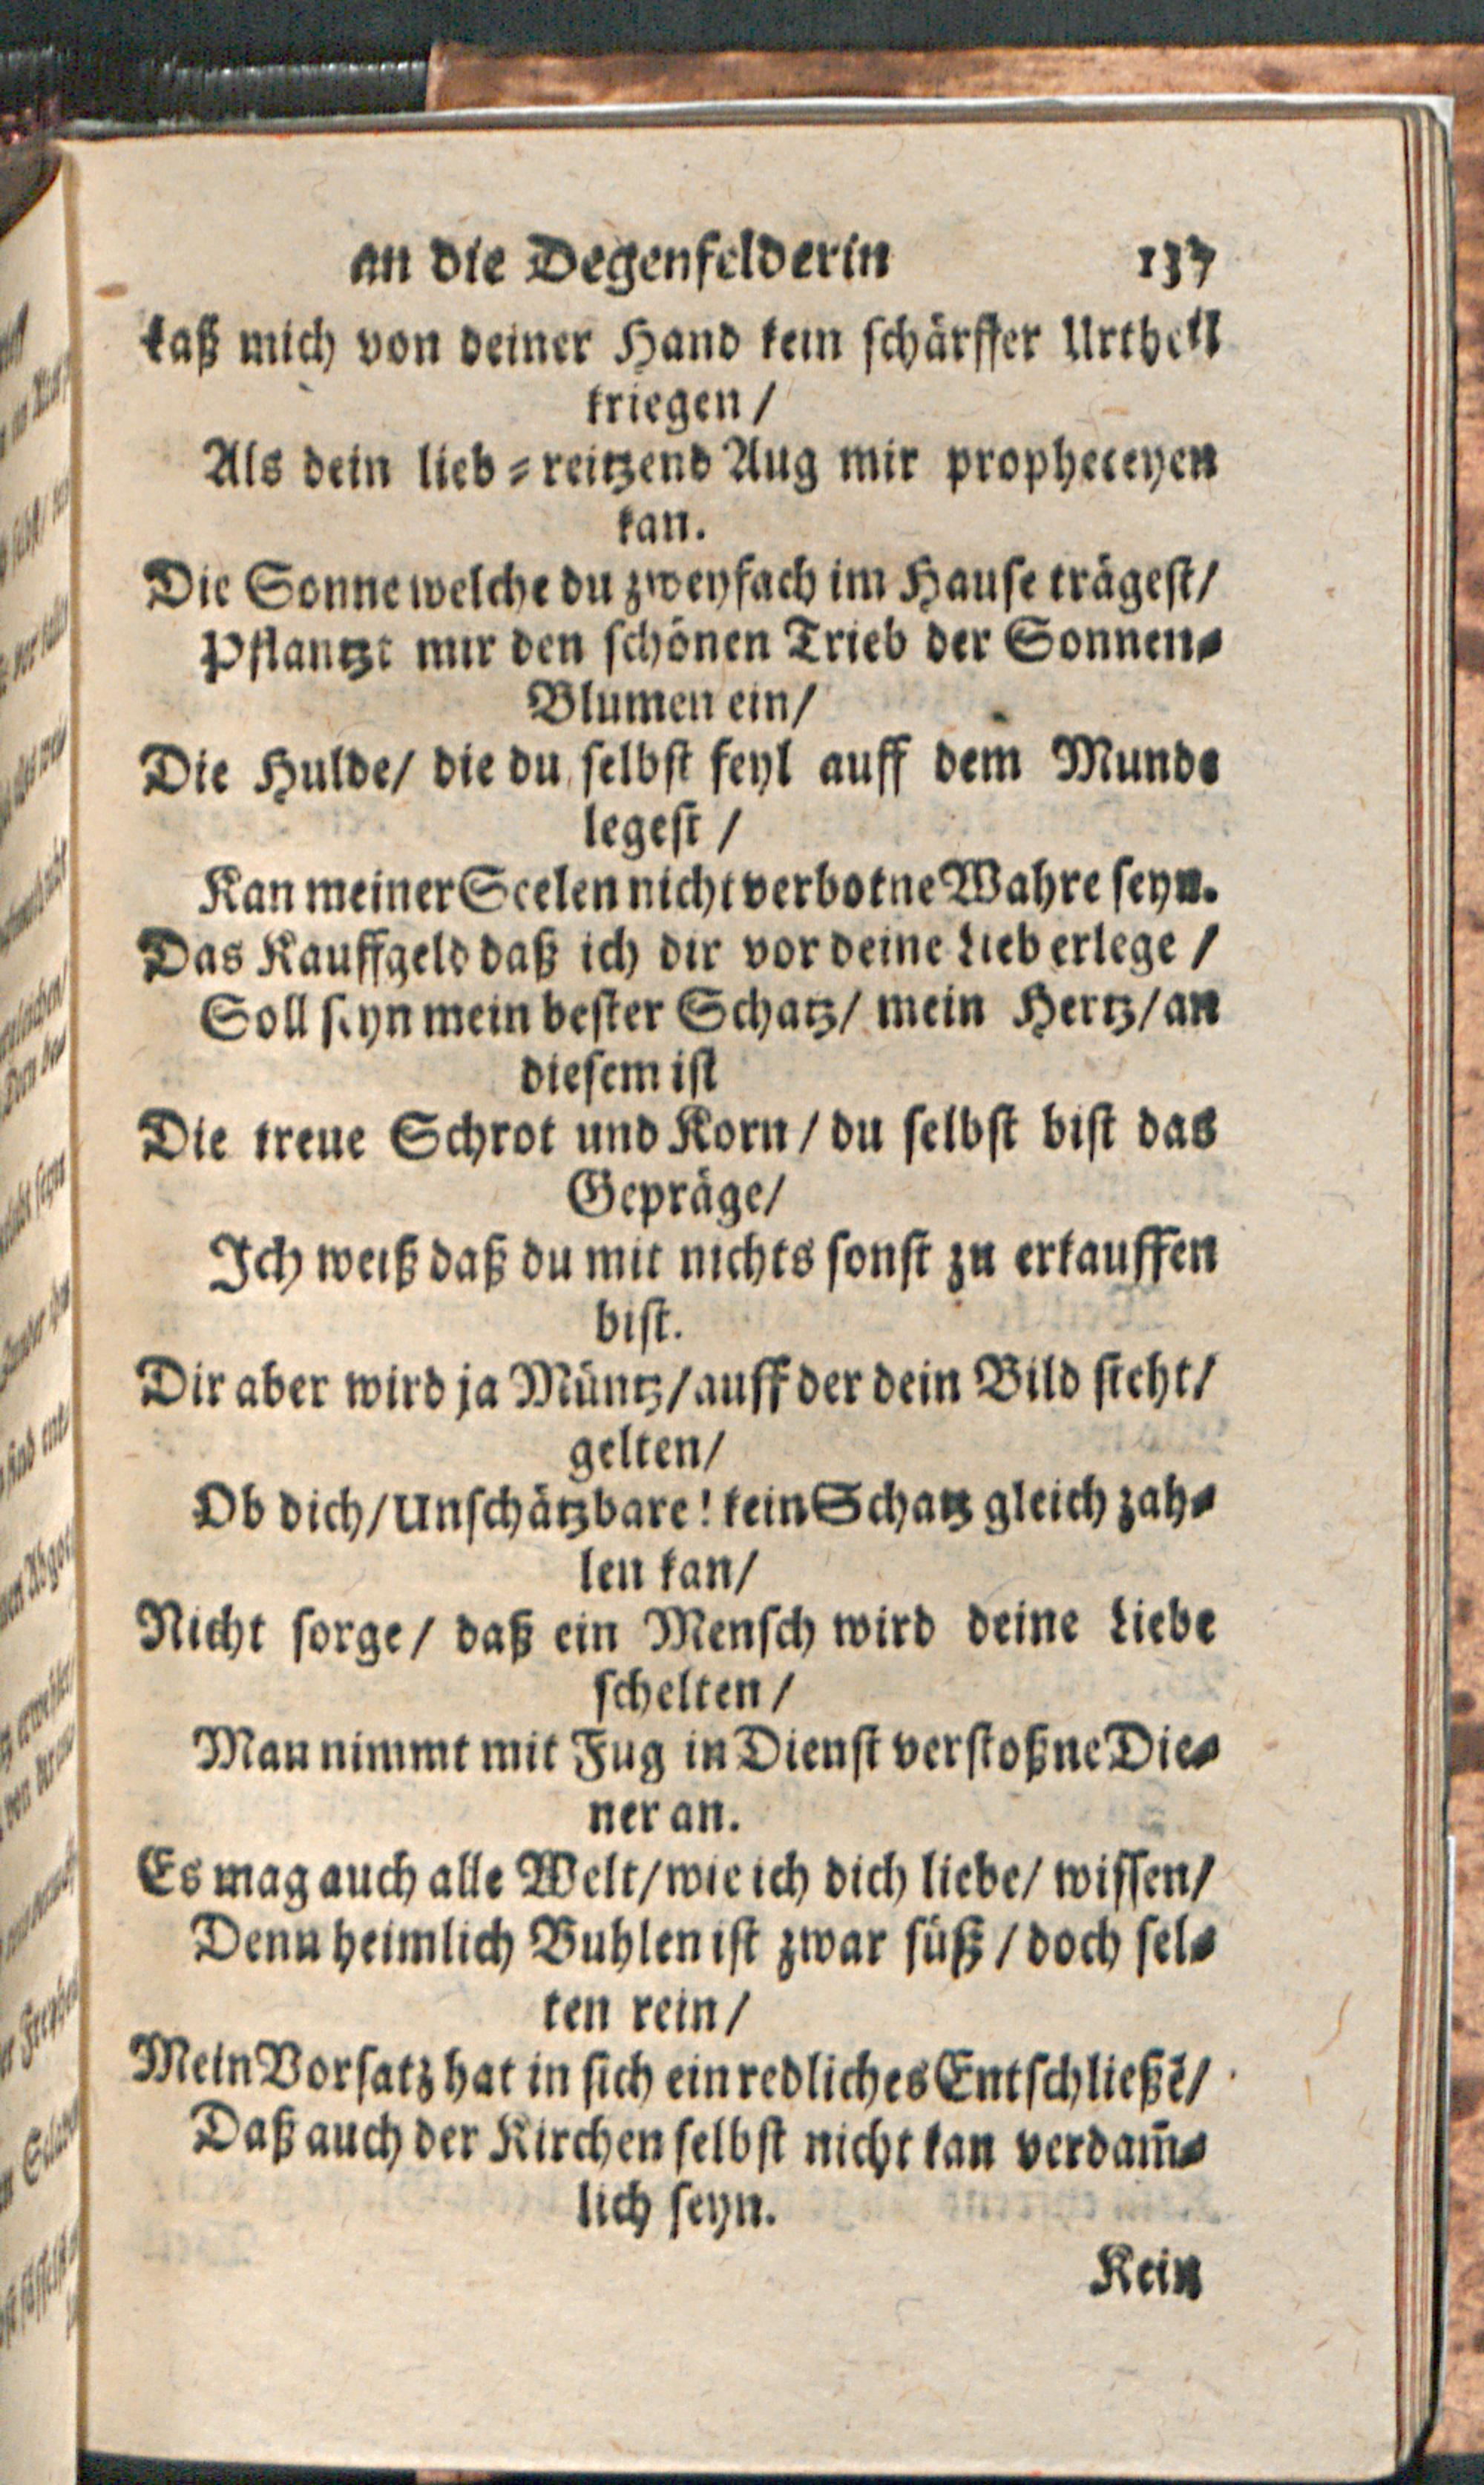 an die Degenfelderin 137
Laß mich von deiner Hand kein schärffer Urtheil
kriegen /
Als dein lieb-reitzend Aug mir propheceyen
kan.
Die Sonne welche du zweyfach im Hause trägest/
Pflantzt mir den schönen Trieb der Sonnen-
Blumen ein/
Die Hulde/ die du selbst feyl auff dem Munde
legest /
Kan meiner Seelen nicht verbotne Wahre seyn.
Das Kauffgeld daß ich dir vor deine Lieb erlege /
Soll seyn mein bester Schatz/ mein Hertz/ an
diesem ist
Die treue Schrot und Korn / du selbst bist das
Gepräge/
Ich weiß daß du mit nichts sonst zu erkauffen
bist.
Dir aber wird ja Müntz/ auff der dein Bild steht/
gelten/
Ob dich/ Unschätzbare! kein Schatz gleich zah-
len kan/
Nicht sorge/ daß ein Mensch wird deine Liebe
schelten /
Man nimmt mit Fug in Dienst verstoßne Die-
ner an.
Es mag auch alle Welt/ wie ich dich liebe/ wissen/
Denn heimlich Buhlen ist zwar süß / doch sel-
ten rein /
Mein Vorsatz hat in sich ein redliches Entschließẽ/
Daß auch der Kirchen selbst nicht kan verdam̃-
lich seyn.
Kein